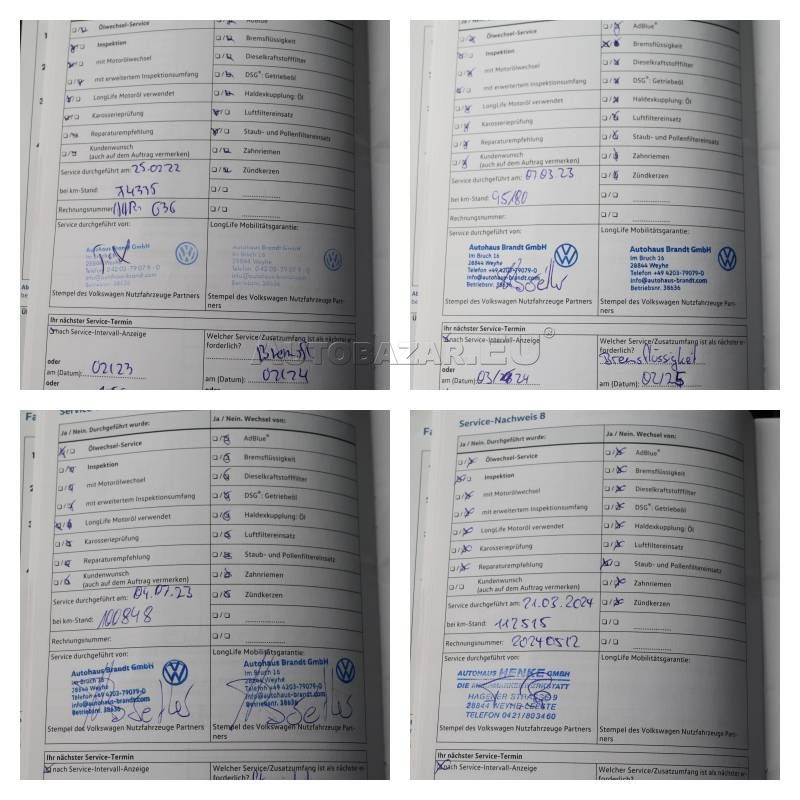 Ölwechsel-Service
AdBlue
Inspektion
Bremsflüssigkeit
mit Motorölwechsel
Dieselkraftstofffilter
mit erweitertem Inspektionsumfang
DSG®: Getriebeöl
LongLife Motoröl verwendet
Haldexkupplung: Öl
Karosserieprüfung
Luftfiltereinsatz
Reparaturempfehlung
Staub- und Pollenfiltereinsatz
Kundenwunsch
(auch auf dem Auftrag vermerken)
Zahnriemen
Service durchgeführt am: 25.02.22
Zündkerzen
bei km-Stand: 74375
Rechnungsnummer:
Service durchgeführt von:
LongLife Mobilitätsgarantie:
Autohaus Brandt GmbH
Im Bruch 16
28844 Weyhe
Telefon +49 4203-79079-0
Stempel des Volkswagen Nutzfahrzeuge Partners
Stempel des Volkswagen Nutzfahrzeuge Part-
ners
Ihr nächster Service-Termin
nach Service-Intervall-Anzeige
Welcher Service/Zusatzumfang ist als nächster er-
forderlich?
oder
am (Datum): 02/23
am (Datum): 02/24
oder
Ja / Nein. Durchgeführt wurde:
Ölwechsel-Service
AdBlue®
Inspektion
Bremsflüssigkeit
mit Motorölwechsel
Dieselkraftstofffilter
mit erweitertem Inspektionsumfang
DSG®: Getriebeöl
LongLife Motoröl verwendet
Haldexkupplung: Öl
Karosserieprüfung
Luftfiltereinsatz
Reparaturempfehlung
Staub- und Pollenfiltereinsatz
Kundenwunsch
(auch auf dem Auftrag vermerken)
Zahnriemen
Service durchgeführt am: 07.03.23
Zündkerzen
bei km-Stand: 95180
Rechnungsnummer:
Service durchgeführt von:
LongLife Mobilitätsgarantie:
Autohaus Brandt GmbH
Im Bruch 16
28844 Weyhe
Telefon +49 4203-79079-0
info@autohaus-brandt.com
Betriebsnr. 38636
Autohaus Brandt GmbH
Im Bruch 16
28844 Weyhe
Telefon +49 4203-79079-0
info@autohaus-brandt.com
Betriebsnr. 38636
Stempel des Volkswagen Nutzfahrzeuge Partners
Stempel des Volkswagen Nutzfahrzeuge Part-
ners
Ihr nächster Service-Termin
nach Service-Intervall-Anzeige
Welcher Service/Zusatzumfang ist als nächster er-
forderlich?
Bremsflüssigkeit
oder
am (Datum):
am (Datum): 02/25
AUTOBAZAR.EU
Ja / Nein. Durchgeführt wurde:
Ja / Nein. Wechsel von:
Ölwechsel-Service
AdBlue®
Inspektion
Bremsflüssigkeit
mit Motorölwechsel
Dieselkraftstofffilter
mit erweitertem Inspektionsumfang
DSG®: Getriebeöl
LongLife Motoröl verwendet
Haldexkupplung: Öl
Karosserieprüfung
Luftfiltereinsatz
Reparaturempfehlung
Staub- und Pollenfiltereinsatz
Kundenwunsch
(auch auf dem Auftrag vermerken)
Zahnriemen
Service durchgeführt am: 04.07.23
Zündkerzen
bei km-Stand: 100848
Rechnungsnummer:
Service durchgeführt von:
LongLife Mobilitätsgarantie:
Autohaus Brandt GmbH
Im Bruch 16
28844 Weyhe
Telefon +49 4203-79079-0
info@autohaus-brandt.com
Betriebsnr. 38636
Autohaus Brandt GmbH
Im Bruch 16
28844 Weyhe
Telefon +49 4203-79079-0
info@autohaus-brandt.com
Betriebsnr. 38636
Stempel des Volkswagen Nutzfahrzeuge Partners
Stempel des Volkswagen Nutzfahrzeuge Part-
ners
Ihr nächster Service-Termin
nach Service-Intervall-Anzeige
Welcher Service/Zusatzumfang ist als nächster er-
forderlich?
Service-Nachweis 8
Ja / Nein. Durchgeführt wurde:
Ja / Nein. Wechsel von:
Ölwechsel-Service
AdBlue®
Inspektion
Bremsflüssigkeit
mit Motorölwechsel
Dieselkraftstofffilter
mit erweitertem Inspektionsumfang
DSG®: Getriebeöl
LongLife Motoröl verwendet
Haldexkupplung: Öl
Karosserieprüfung
Luftfiltereinsatz
Reparaturempfehlung
Staub- und Pollenfiltereinsatz
Kundenwunsch
(auch auf dem Auftrag vermerken)
Zahnriemen
Service durchgeführt am: 21.03.2024
Zündkerzen
bei km-Stand: 112515
Rechnungsnummer: 20240512
Service durchgeführt von:
LongLife Mobilitätsgarantie:
AUTOHAUS HENKE GMBH
28844 WEYHE-LEESTE
TELEFON 0421/803460
Stempel des Volkswagen Nutzfahrzeuge Partners
Stempel des Volkswagen Nutzfahrzeuge Part-
ners
Ihr nächster Service-Termin
nach Service-Intervall-Anzeige
Welcher Service/Zusatzumfang ist als nächster er-
forderlich?